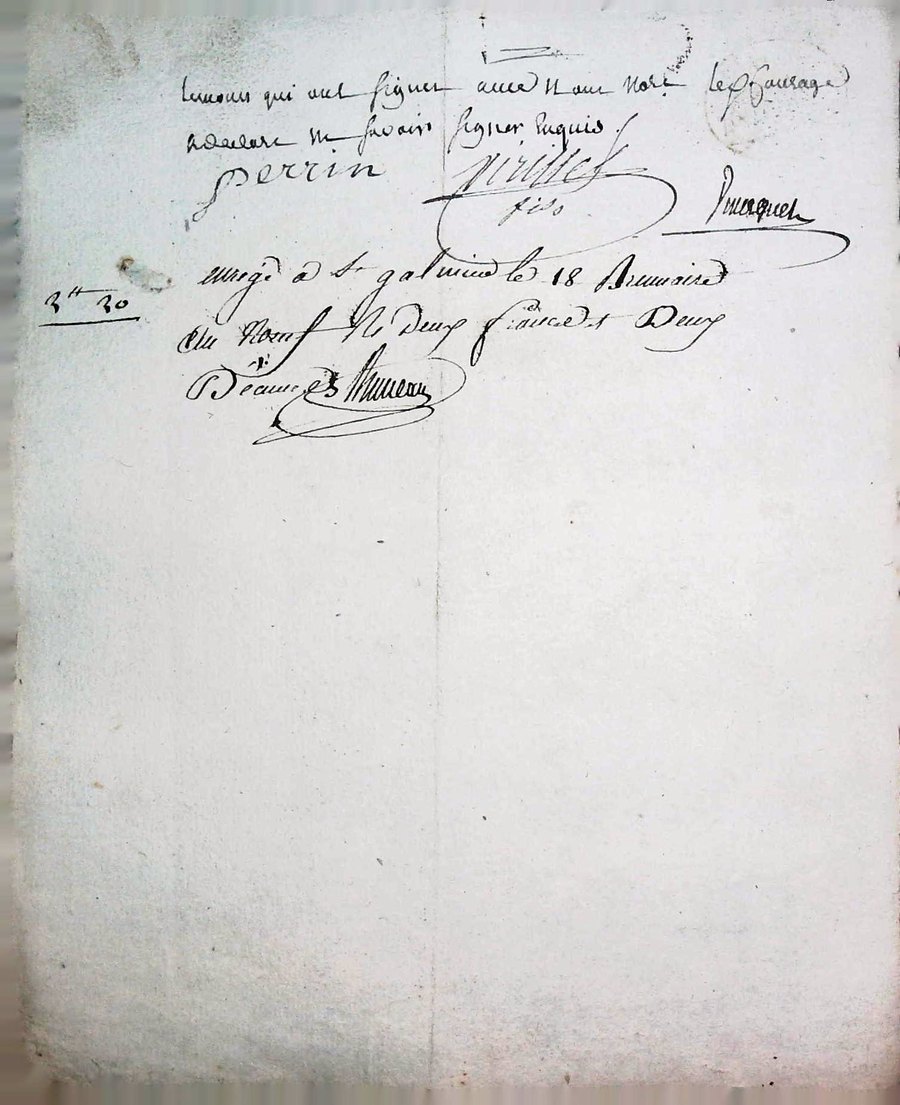 temoins qui ont signer avec Nous Not.re led. Sauvage
a declare ne savoir signer Enquis
perrin
fils
enregé à St galmier le 18 Brumaire
3tt 30
an Neuf R. Deux francs et Deux
Décimes